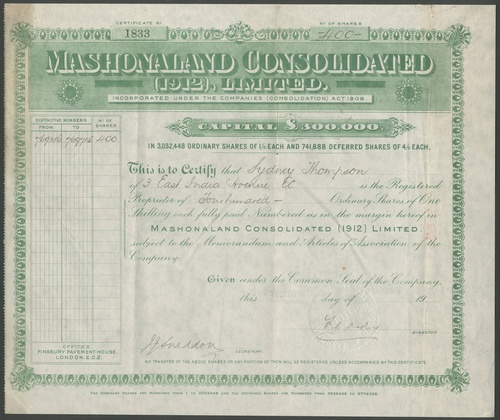 CERTIFICATE Nº
1833
Nº OF SHARES
-400-
MASHONALAND CONSOLIDATED
(1912), LIMITED.
INCORPORATED UNDER THE COMPANIES (CONSOLIDATION) ACT 1908.
DISTINCTIVE NUMBERS
FROM TO
Nº OF SHARES
400
CAPITAL $300,000
IN 3,032,448 ORDINARY SHARES OF 1/- EACH AND 741,888 DEFERRED SHARES OF 4/- EACH.
This is to Certify that Sydney Thompson
of 3 East India Avenue, EC is the Registered
Proprietor of Four hundred - Ordinary Shares of One
Shilling each fully paid Numbered as in the margin hereof in
MASHONALAND CONSOLIDATED (1912) LIMITED
subject to the Memorandum and Articles of Association of the
Company.
Given under the Common Seal of the Company,
this day of 19
DIRECTOR
SECRETARY
NO TRANSFER OF THE ABOVE SHARES OR ANY PORTION OF THEM WILL BE REGISTERED, UNLESS ACCOMPANIED BY THIS CERTIFICATE.
OFFICES.
FINSBURY PAVEMENT HOUSE,
LONDON, E.C.2.